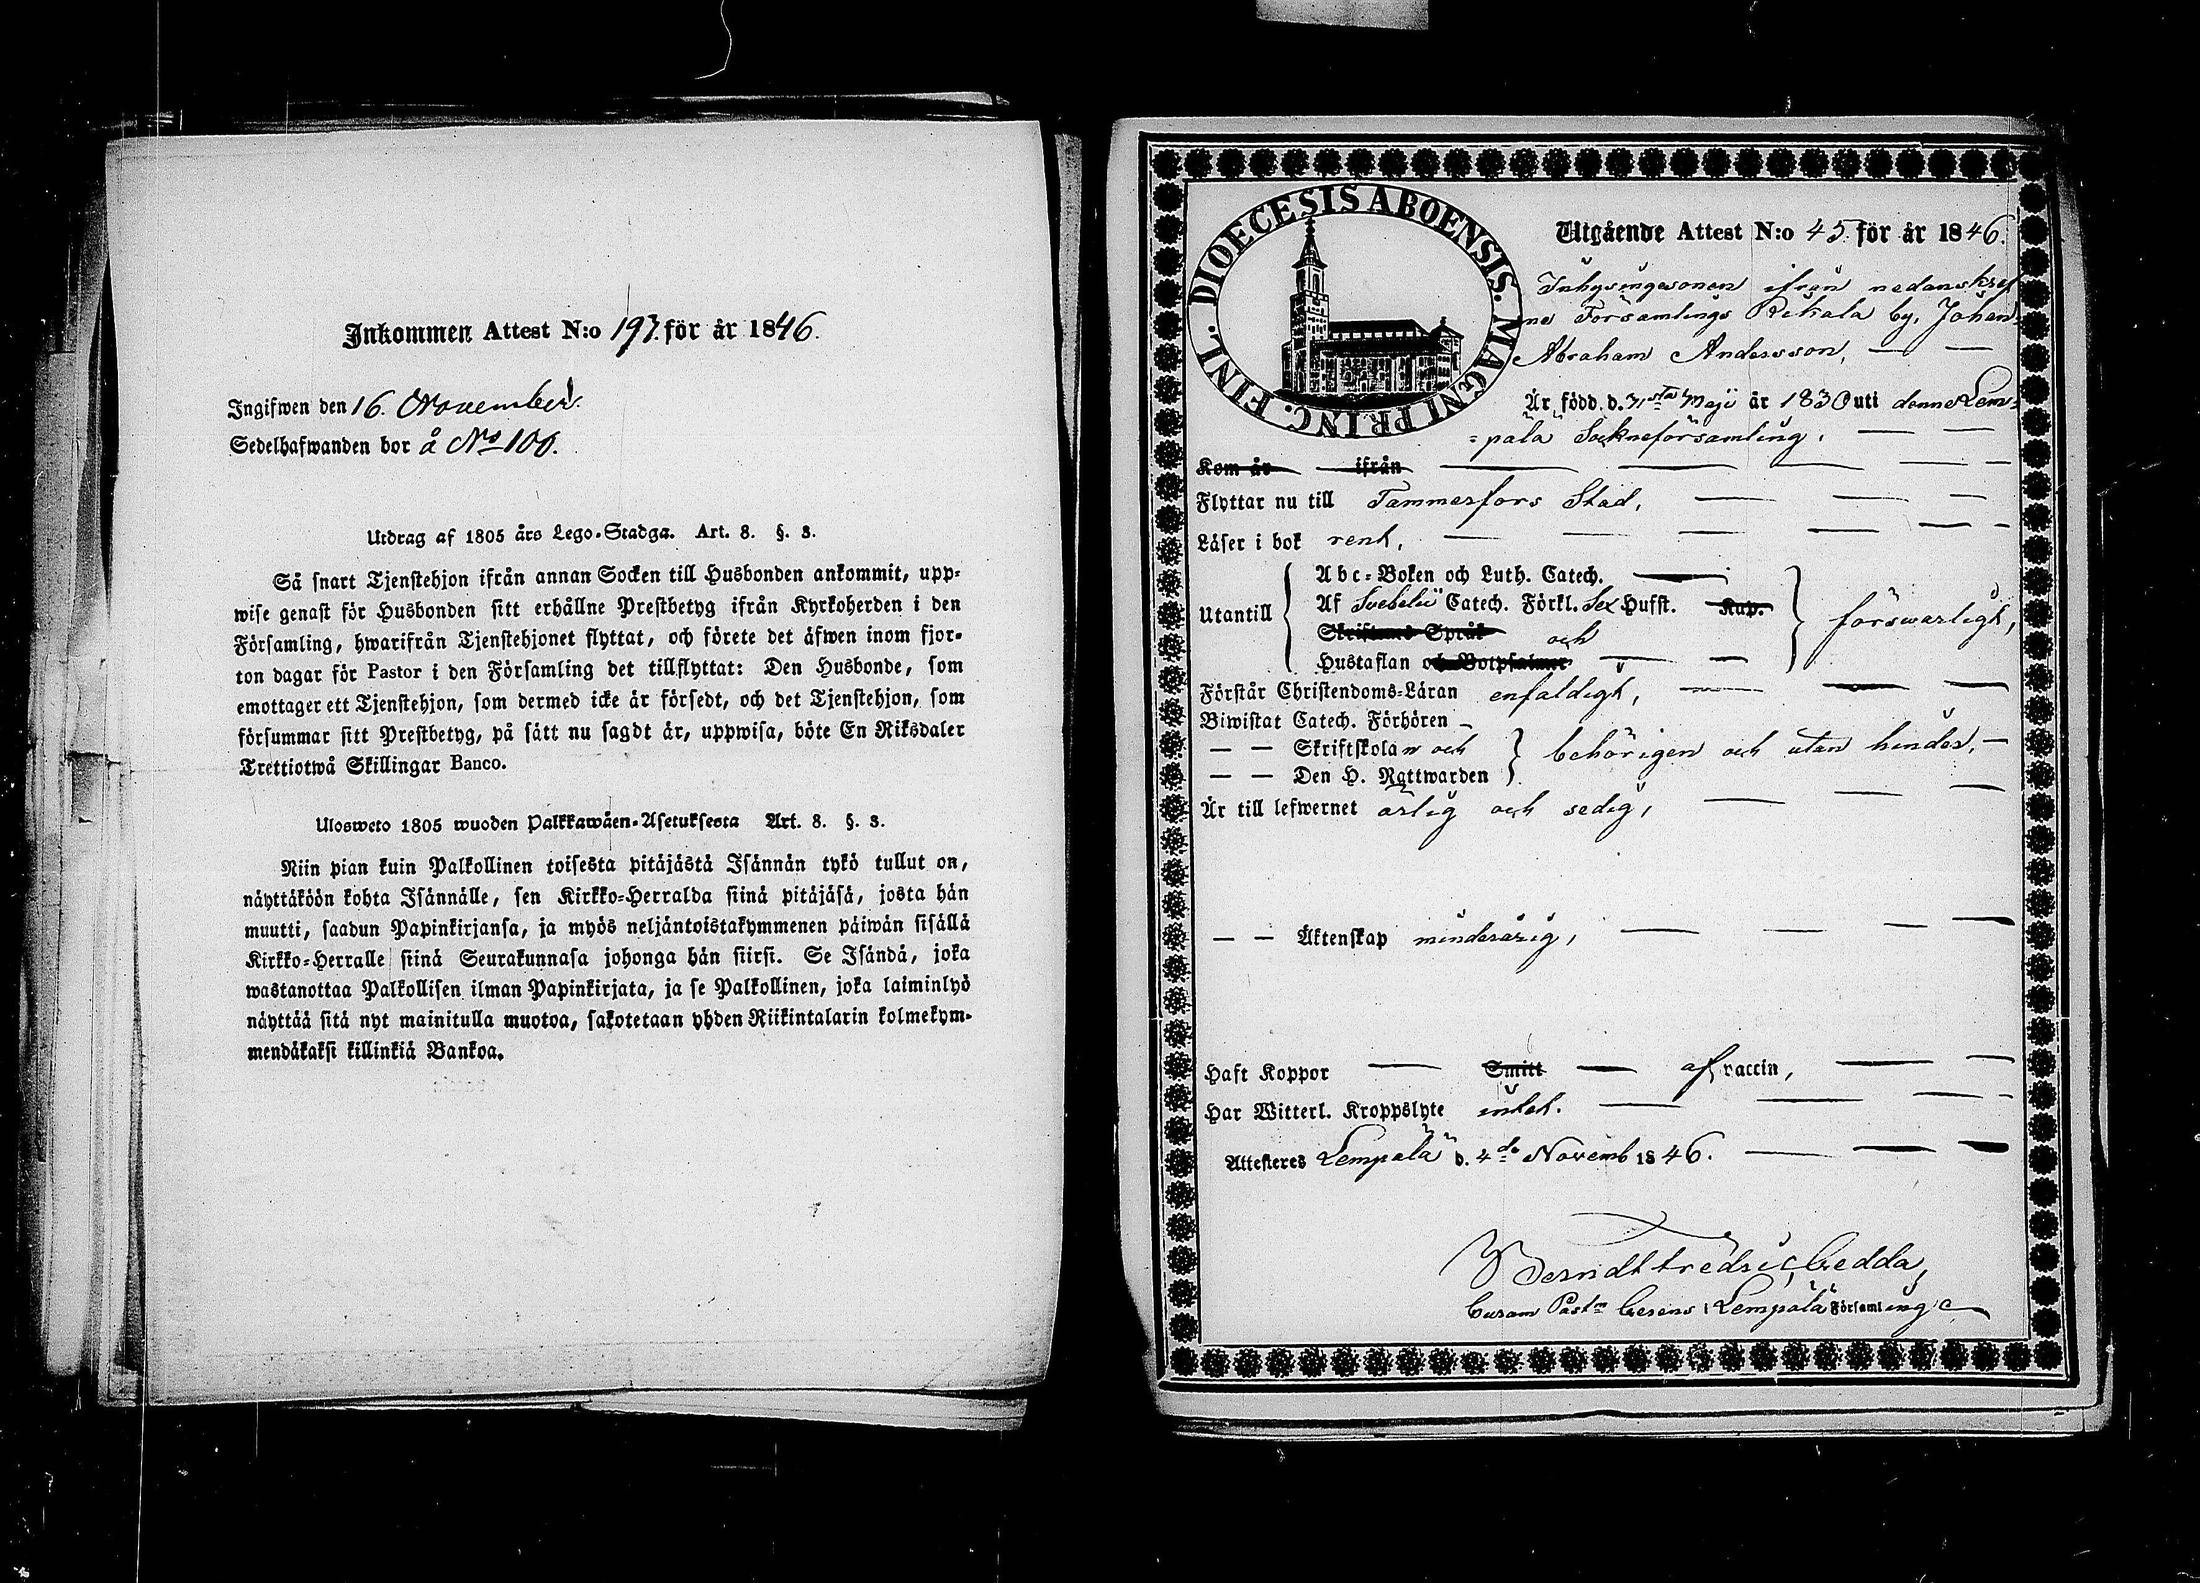 Inkommen Attest N:o 193. för år 1846.
Ingifwen den 16. November.
Sedelhafwanden bor å No 100.
Utdrag af 1805 års Lego-Stadga. Art. 8. §. 3.
Så snart Tjenstehjon ifrån annan Socken till Husbonden ankommit, upp-
wise genast för Husbonden sitt erhållne Prestbetyg ifrån Kyrkoherden i den
Församling, hwarifrån Tjenstehjonet flyttat, och förete det äfwen inom fjor-
ton dagar för Pastor i den Församling det tillflyttat: Den Husbonde, som
emottager ett Tjenstehjon, som dermed icke är försedt, och det Tjenstehjon, som
försummar sitt Prestbetyg, på sätt nu sagdt är, uppwisa, böte En Riksdaler
Trettiotwå Skillingar Banco.
Ulosweto 1805 wuoden Palkkawäen-Asetuksesta Art. 8. §. 3.
Niin pian kuin Palkollinen toisesta pitäjästä Isännän tykö tullut on,
näyttäköön kohta Isännälle, sen Kirkko-Herralda siinä pitäjäsä, josta hän
muutti, saadun Papinkirjansa, ja myös neljäntoistakymmenen päiwän sisällä
Kirkko-Herralle siinä Seurakunnasa johonga hän siirsi. Se Isändä, joka
wastanottaa Palkollisen ilman Papinkirjata, ja se Palkollinen, joka laiminlyö
näyttää sitä nyt mainitulla muotoa, sakotetaan yhden Riikintalarin kolmekym-
mendäkaksi killinkiä Bankoa.
DIOECESIS ABOENSIS. MAGNI PRINC. FINL.
Utgående Attest N:o 45. för år 1846.
Inhysingesonen ifrån nedanskref
ne Församlings Rikala by, Johan
Abraham Andersson,
Är född d. 31sta Maji år 1830 uti denne Lem-
=pälä Sockneförsamling,
Kom år ifrån
Flyttar nu till Tammerfors Stad,
Läser i bok rent,
Abc-Boken och Luth. Catech.
Utantill Af Svebelii Catech. Förkl. Sex Hufst. Kap. förswarligt,
Skriftens Språk och
Hustaflan och Botpsalmer
Förstår Christendoms-Läran enfaldigt,
Biwistat Catech. Förhören
— — Skriftskolan och behörigen och utan hinder,
— — Den H. Nattwarden
Är till lefwernet ärlig och sedig,
— — Äktenskap minderårig,
Haft Koppor Smitt af vaccin,
Har Witterl. Kroppslyte intet.
Attesteres Lempälä d. 4de Novemb 1846.
Berndt Fredric Gedda,
Curam Past:m Gerens i Lempälä Församling